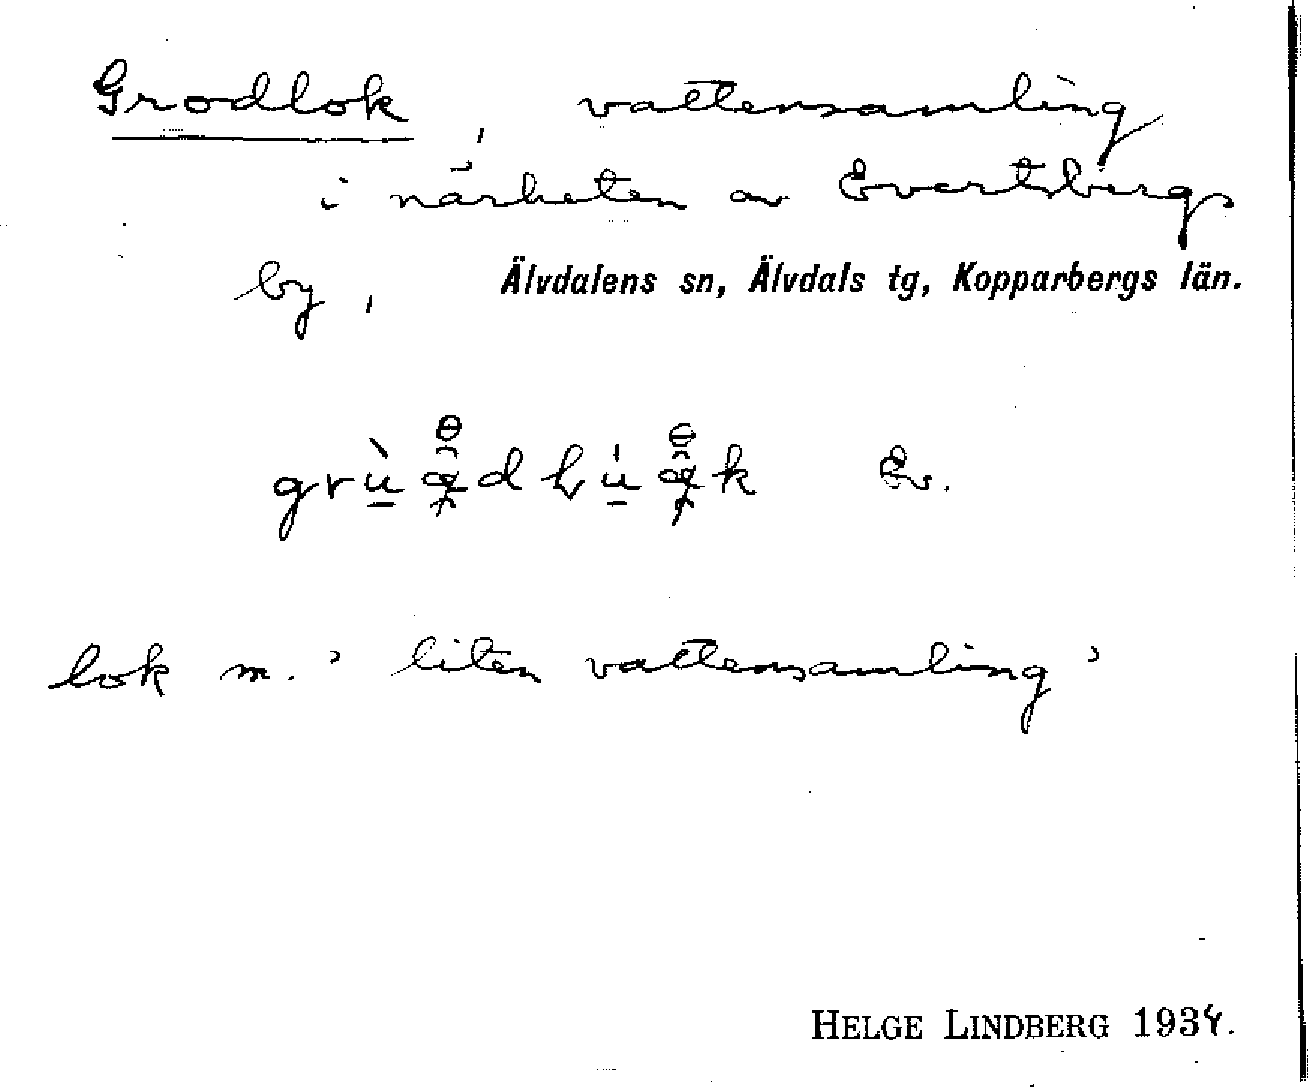 Grodlok, vattensamling
i närheten av Evertsbergs
by, Älvdalens sn, Älvdals tg, Kopparbergs län.
Ev.
lok m. ’liten vattensamling’
HELGE LINDBERG 1934.